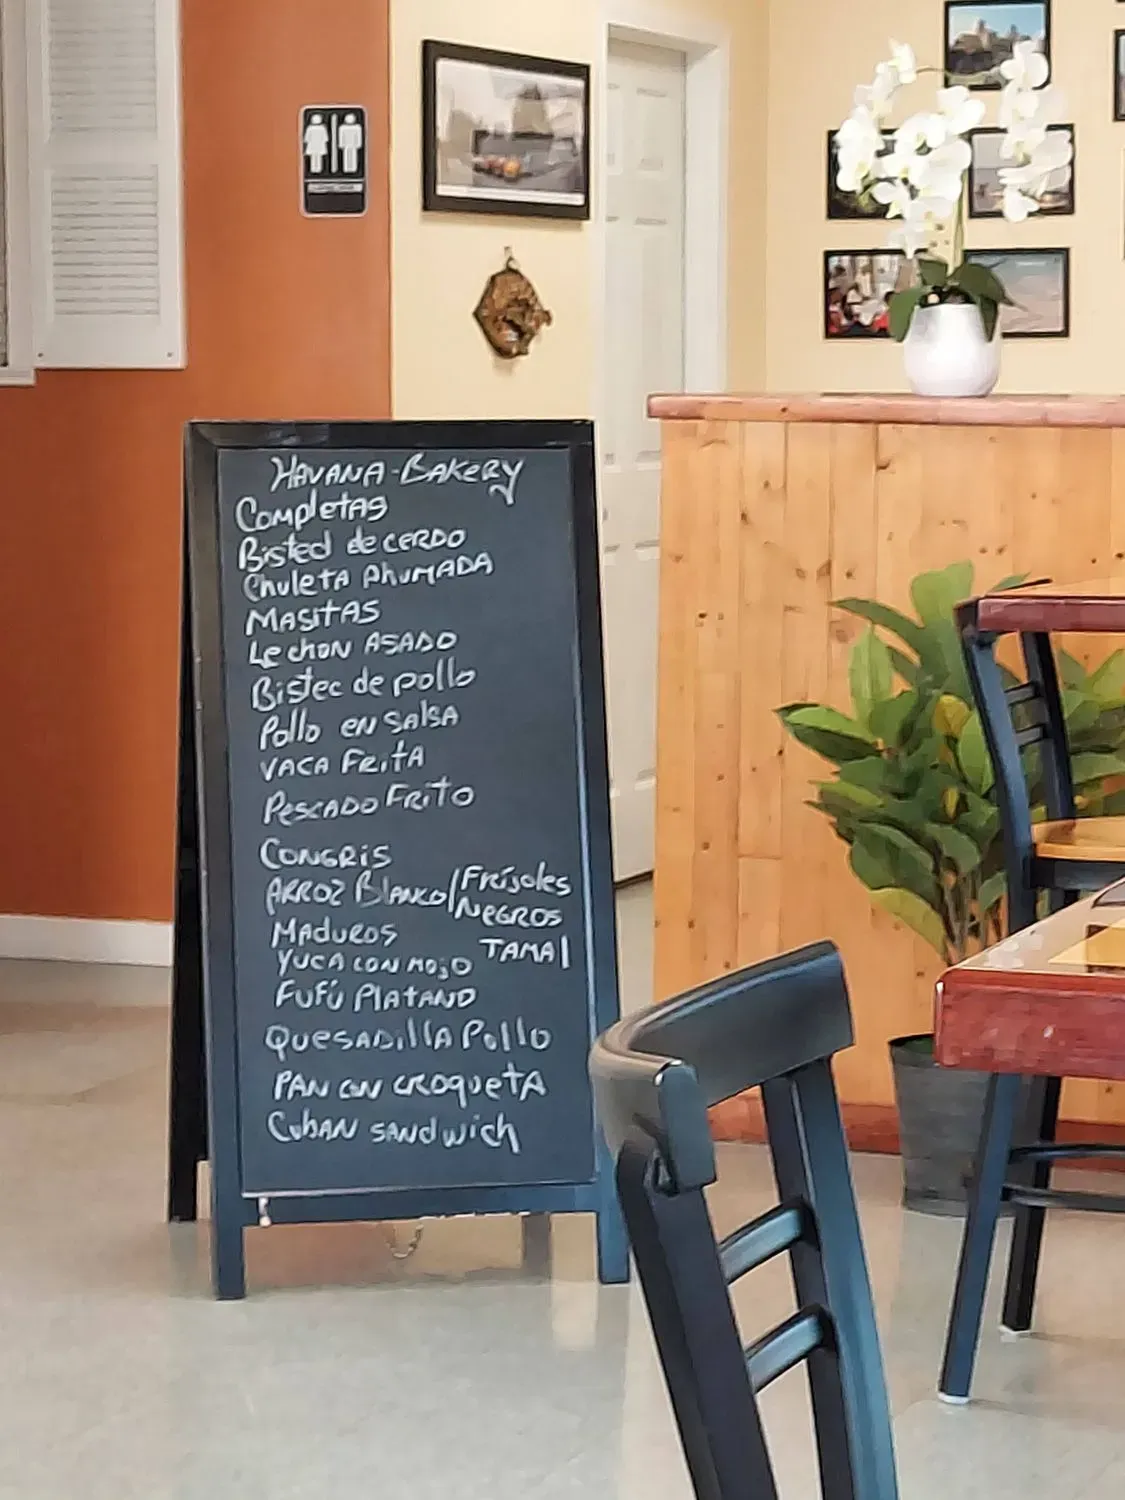 HAVANA-BAKERY
Completas
Bisted de CERDO
Chuleta AhUMADA
MASITAS
Lechon ASADO
Bistec de pollo
Pollo en SAlSA
VACA FRITA
PESCADO FRITO
CONGRIS
ARROZ BLANCO/FRiSoles
NEGROS
MADUROS
TAMAl
YUCA CON MOJO
FUFÚ PlATANO
QUESADillA Pollo
PAN CON CROQUETA
CUBAN SANDwich